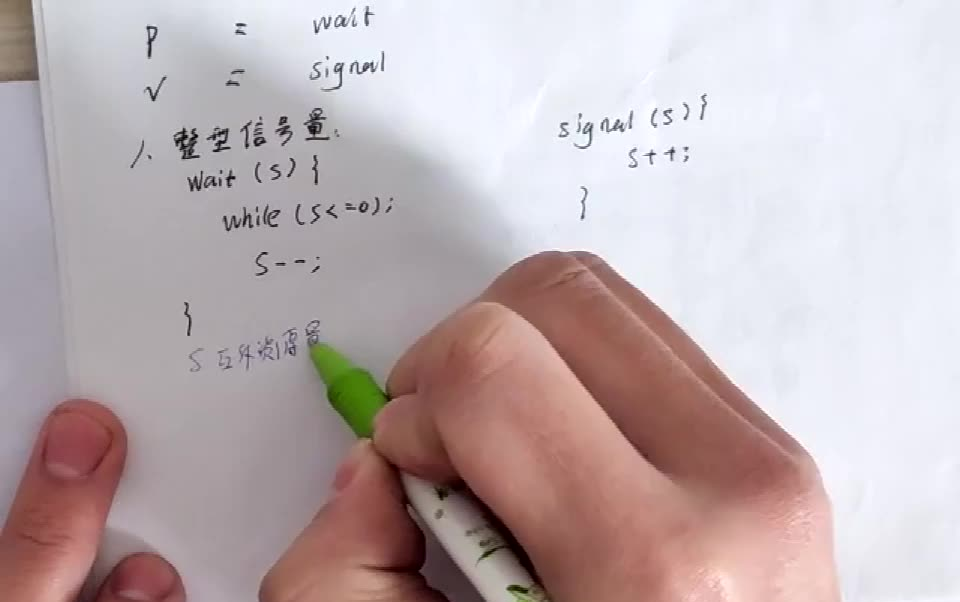 P = wait
V = signal
1、整型信号量：
wait (S) {
while (S<=0);
S--;
}
signal (S) {
S++;
}
S 互斥资源量